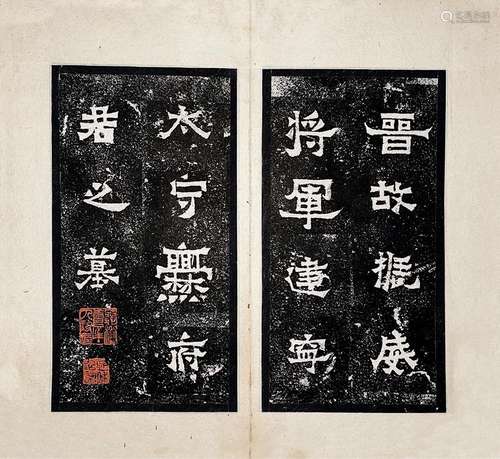 晋故振威
将軍建寧
太守爨府
君之墓